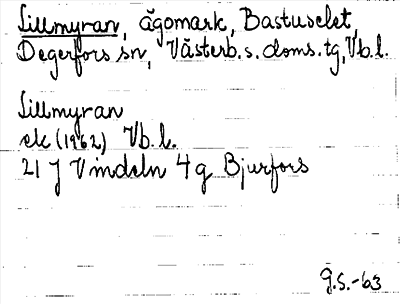 Lillmyran, ägomark, Bastuselet,
Degerfors sn, Västerb.s.doms.tg, Vb.l.
Lillmyran
ek (1962) Vb.l.
21 J Vindeln 4 g Bjurfors
G.S.-63